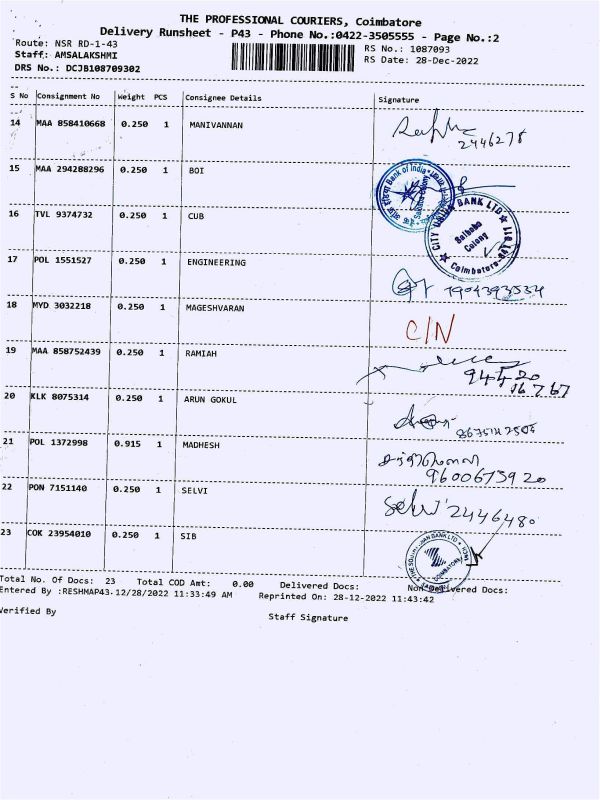 THE PROFESSIONAL COURIERS, Coimbatore
Delivery Runsheet - P43 - Phone No.:0422-3505555 - Page No.:2
Route: NSR RD-1-43
RS No.: 1087093
Staff: AMSALAKSHMI
RS Date: 28-Dec-2022
DRS No.: DCJB108709302
S No Consignment No Weight PCS Consignee Details Signature
14 MAA 858410668 0.250 1 MANIVANNAN
2446278
15 MAA 294288296 0.250 1 BOI
Bank of India
16 TVL 9374732 0.250 1 CUB
CITY UNION BANK LTD
Saibaba
Colony
Coimbatore
17 POL 1551527 0.250 1 ENGINEERING
7904393534
18 MYD 3032218 0.250 1 MAGESHVARAN
C/N
19 MAA 858752439 0.250 1 RAMIAH
94420
16767
20 KLK 8075314 0.250 1 ARUN GOKUL
21 POL 1372998 0.915 1 MADHESH
9600673920
22 PON 7151140 0.250 1 SELVI
Selvi 2446480
23 COK 23954010 0.250 1 SIB
COIMBATORE
Total No. Of Docs: 23 Total COD Amt: 0.00 Delivered Docs: Non-Delivered Docs:
Entered By :RESHMAP43-12/28/2022 11:33:49 AM Reprinted On: 28-12-2022 11:43:42
Verified By
Staff Signature